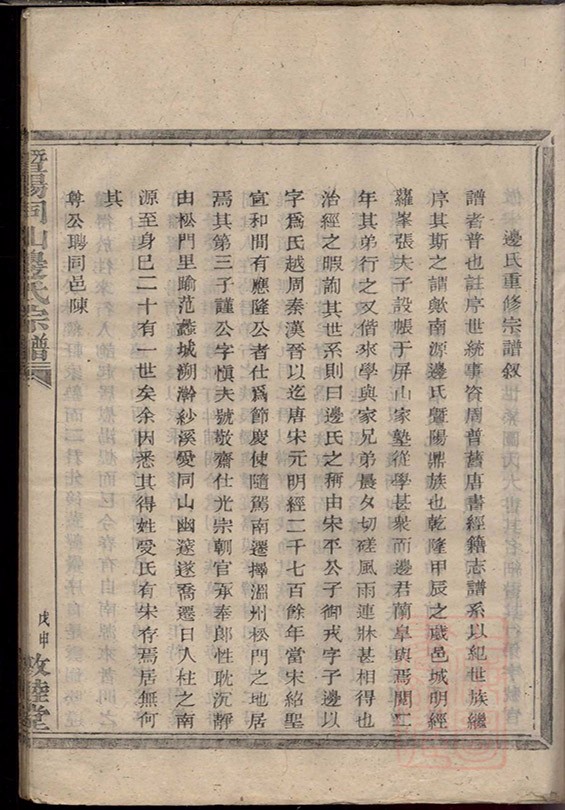 邊氏重修宗譜叙
譜者普也註序世統事資周普舊唐書經籍志譜系以紀世族繼
序其斯之謂歟南源邊氏暨陽鼎族也乾隆甲辰之歲邑城明經
蘿峯張夫子設帳于屏山家塾從學甚衆而邊君蘭皋與焉閱二
年其弟行之又偕來學與家兄弟晨夕切磋風雨連牀甚相得也
治經之暇詢其世系則曰邊氏之稱由宋平公子御戎字子邊以
字爲氏越周秦漢晉以迄唐宋元明經二千七百餘年當宋紹聖
宣和間有應隆公者仕爲節慶使隨駕南遷擇溫州松門之地居
焉其第三子謹公字愼夫號敬齋仕光宗朝官承奉郎性耽沉靜
由松門里踰范蠡城溯澣紗溪愛同山幽邃遂喬遷日入柱之南
源至身巳二十有一世矣余因悉其得姓受氏有宋存焉居無何
其
尊公聘同邑陳
暨陽同山邊氏宗譜
戊申
敦睦堂